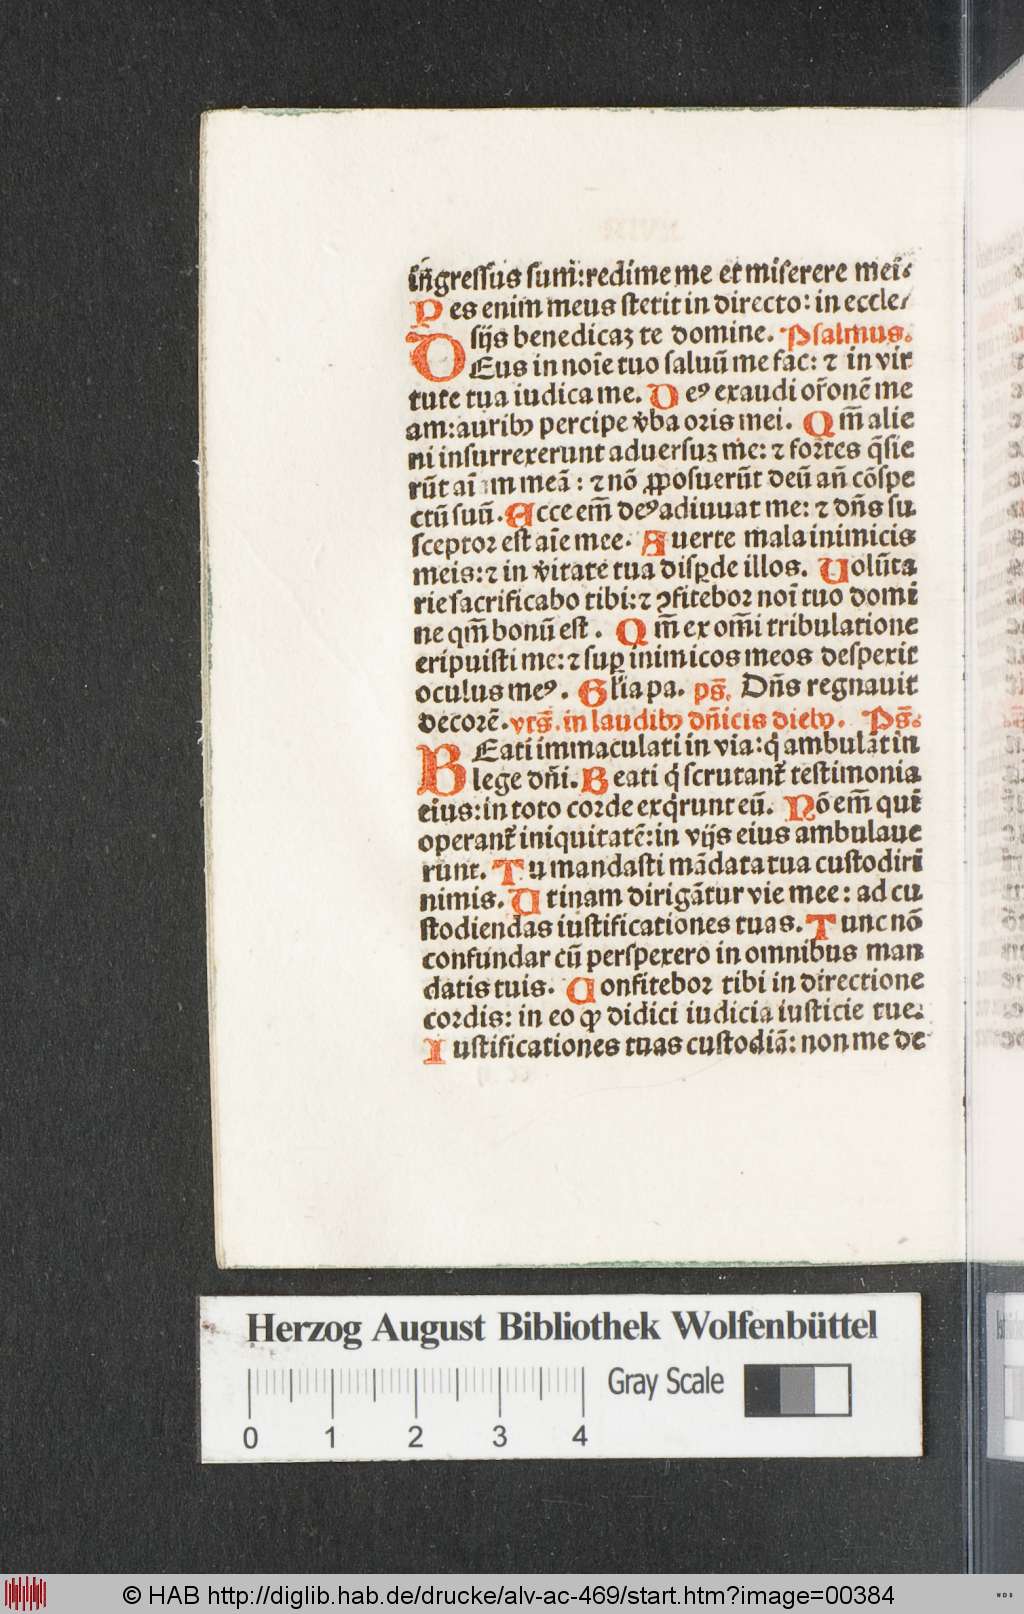 ingressus sum̄: redime me et miserere mei.
Pes enim meus stetit in directo: in eccle/
sijs benedicaꝫ te domine. Psalmus.
DEus in noīe tuo saluū me fac: ⁊ in vir
tute tua iudica me. Deꝰ exaudi or̄onē me
am: auribꝰ percipe v̄ba oris mei. Qm̄ alie
ni insurrexerunt aduersuꝫ me: ⁊ fortes q̄sie
rūt aīam meā: ⁊ nō ꝓposuerūt deū an̄ cōspe
ctū suū. Ecce em̄ deꝰ adiuuat me: ⁊ dn̄s su
sceptor est aīe mee. Auerte mala inimicis
meis: ⁊ in v̄itate tua disꝑde illos. Uolūta
rie sacrificabo tibi: ⁊ ꝯfitebor noī tuo domi
ne qm̄ bonū est. Qm̄ ex om̄i tribulatione
eripuisti me: ⁊ suꝑ inimicos meos despexit
oculus meꝰ. Gl̄ia pa. ps̄. Dn̄s regnauit
decorē. vrs̄. in laudibꝰ dn̄icis diebꝰ. Ps̄.
BEati immaculati in via: q̇ ambulāt in
lege dn̄i. Beati q̇ scrutant̄ testimonia
eius: in toto corde exq̇runt eū. Nō em̄ qui
operant̄ iniquitatē: in vijs eius ambulaue
rūnt. Tu mandasti mādata tua custodiri
nimis. Utinam dirigātur vie mee: ad cu
stodiendas iustificationes tuas. Tunc nō
confundar cū perspexero in omnibus man
datis tuis. Confitebor tibi in directione
cordis: in eo ꝙ didici iudicia iusticie tue.
Iustificationes tuas custodiā: non me de
Herzog August Bibliothek Wolfenbüttel
Gray Scale
0 1 2 3 4
© HAB http://diglib.hab.de/drucke/alv-ac-469/start.htm?image=00384